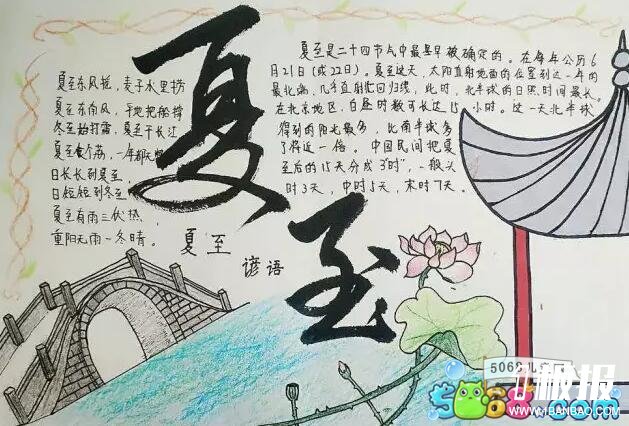 夏至
夏至东风摇，麦子水里捞
夏至东南风，平地把船撑
冬至始打霜，夏至干长江
夏至食个荔，一年都无
日长长到夏至
日短短到冬至
夏至有雨三伏热
重阳无雨一冬晴。
夏至
谚语
夏至是二十四节气中最早被确定的。在每年公历6
月21日（或22日）。夏至这天，太阳直射地面的位置到达一年的
最北端，几乎直射北回归线，此时，北半球的日照时间最长。
在北京地区，白昼时数可长达15小时。这一天北半球
得到的阳光最多，比南半球多
了将近一倍。中国民间把夏
至后的15天分成3"时"，一般头
时3天，中时5天，末时7天。
5068儿
1板报
5068.com
WWW.1BANBAO.COM